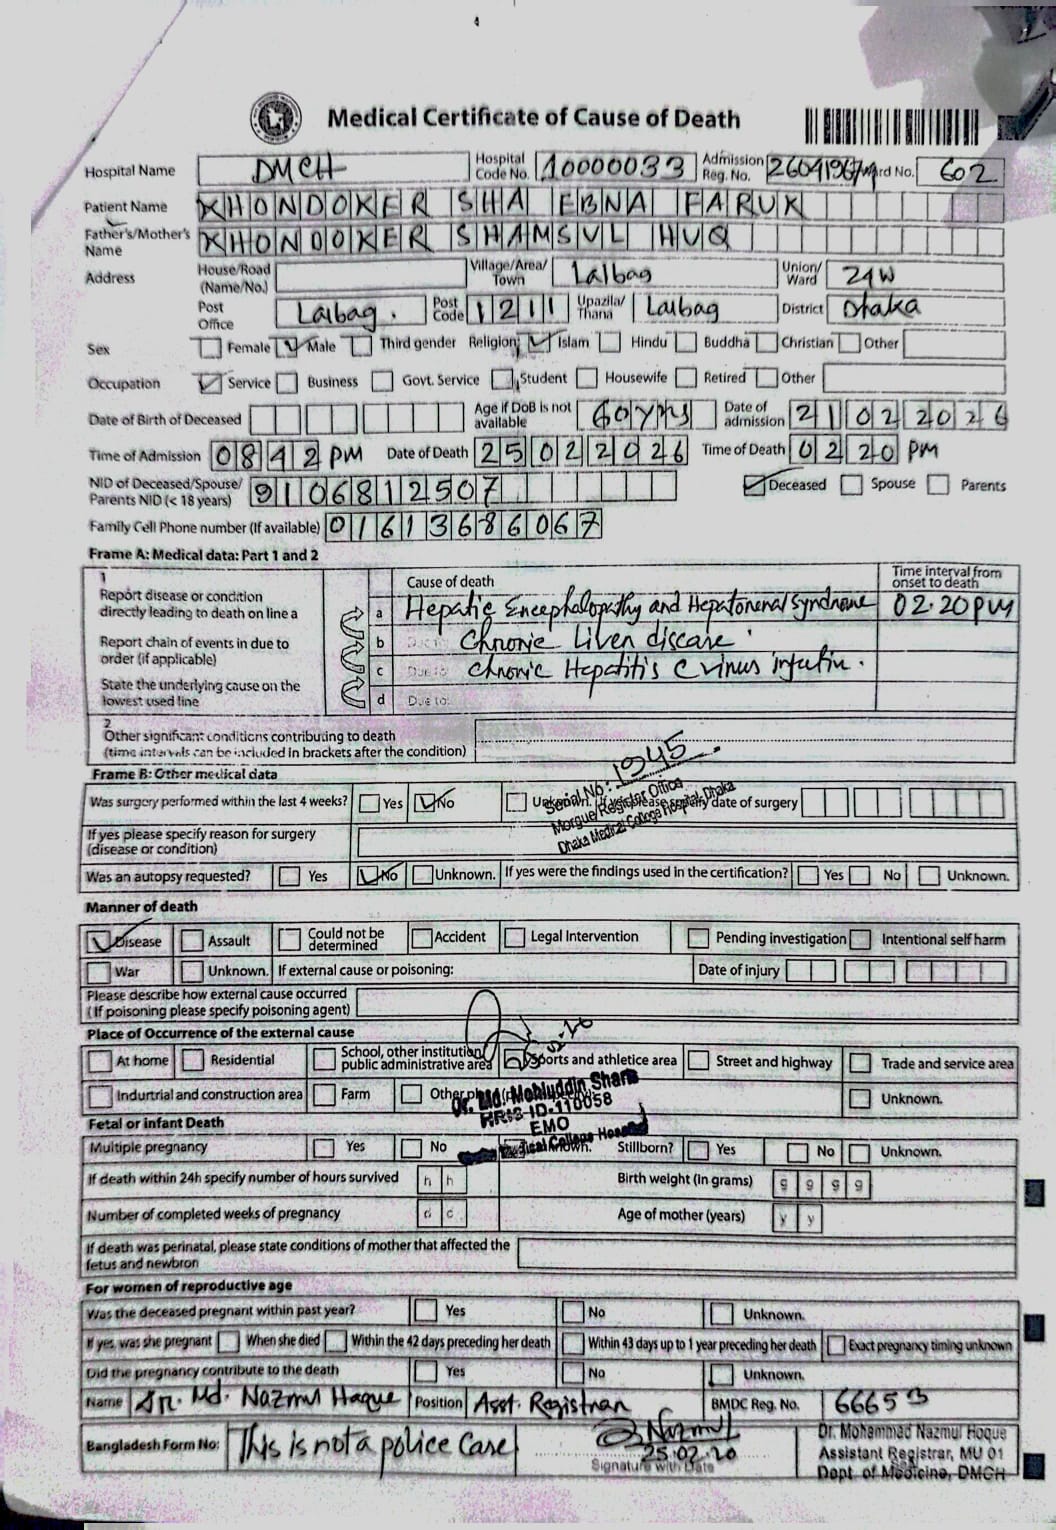 Medical Certificate of Cause of Death
Hospital Name DMCH Hospital Code No. 10000033 Admission Reg. No. Ward No. 602
Patient Name KHONDOKER SHA EBNA FARUK
Father's/Mother's Name KHONDOKER SHAMSUL HUQ
Address House/Road (Name/No.) Village/Area/Town Lalbag Union/Ward 24W
Post Office Lalbag. Post Code 1211 Upazila/Thana Lalbag District Dhaka
Sex Female Male Third gender Religion Islam Hindu Buddha Christian Other
Occupation Service Business Govt. Service Student Housewife Retired Other
Date of Birth of Deceased Age if DoB is not available 60yrs Date of admission 21 02 2026
Time of Admission 0842 PM Date of Death 25 02 2026 Time of Death 02 20 PM
NID of Deceased/Spouse/Parents NID (< 18 years) 9106812507 Deceased Spouse Parents
Family Cell Phone number (If available) 01613686067
Frame A: Medical data: Part 1 and 2
1
Report disease or condition directly leading to death on line a
Report chain of events in due to order (if applicable)
State the underlying cause on the lowest used line
Cause of death Time interval from onset to death
a Hepatic Encephalopathy and Hepatorenal Syndrome 02.20pm
b Due to: Chronic Liver disease
c Due to: Chronic Hepatitis C virus infection.
d Due to:
2
Other significant conditions contributing to death
(time intervals can be included in brackets after the condition)
Frame B: Other medical data
Was surgery performed within the last 4 weeks? Yes No Unknown. If yes please specify date of surgery
Serial No: 1945
Morgue/Register Office
Dhaka Medical College Hospital, Dhaka
If yes please specify reason for surgery (disease or condition)
Was an autopsy requested? Yes No Unknown. If yes were the findings used in the certification? Yes No Unknown.
Manner of death
Disease Assault Could not be determined Accident Legal Intervention Pending investigation Intentional self harm
War Unknown. If external cause or poisoning: Date of injury
Please describe how external cause occurred
( If poisoning please specify poisoning agent)
Place of Occurrence of the external cause
At home Residential School, other institution, public administrative area Sports and athletice area Street and highway Trade and service area
Indurtrial and construction area Farm Other Unknown.
Dr. Md. Mohiuddin
110058
EMO
Medical College
Fetal or infant Death
Multiple pregnancy Yes No Unknown. Stillborn? Yes No Unknown.
If death within 24h specify number of hours survived h h Birth weight (in grams) g g g g
Number of completed weeks of pregnancy d d Age of mother (years) y y
If death was perinatal, please state conditions of mother that affected the fetus and newbron
For women of reproductive age
Was the deceased pregnant within past year? Yes No Unknown.
If yes, was she pregnant When she died Within the 42 days preceding her death Within 43 days up to 1 year preceding her death Exact pregnancy timing unknown
Did the pregnancy contribute to the death Yes No Unknown.
Name Dr. Md. Nazmul Haque Position Asst. Registrar BMDC Reg. No. 66653
Bangladesh Form No: This is not a police case
Nazmul
Signature with Date
Dr. Mohammad Nazmul Hoque
Assistant Registrar, MU 01
Dept of Medicine, DMCH